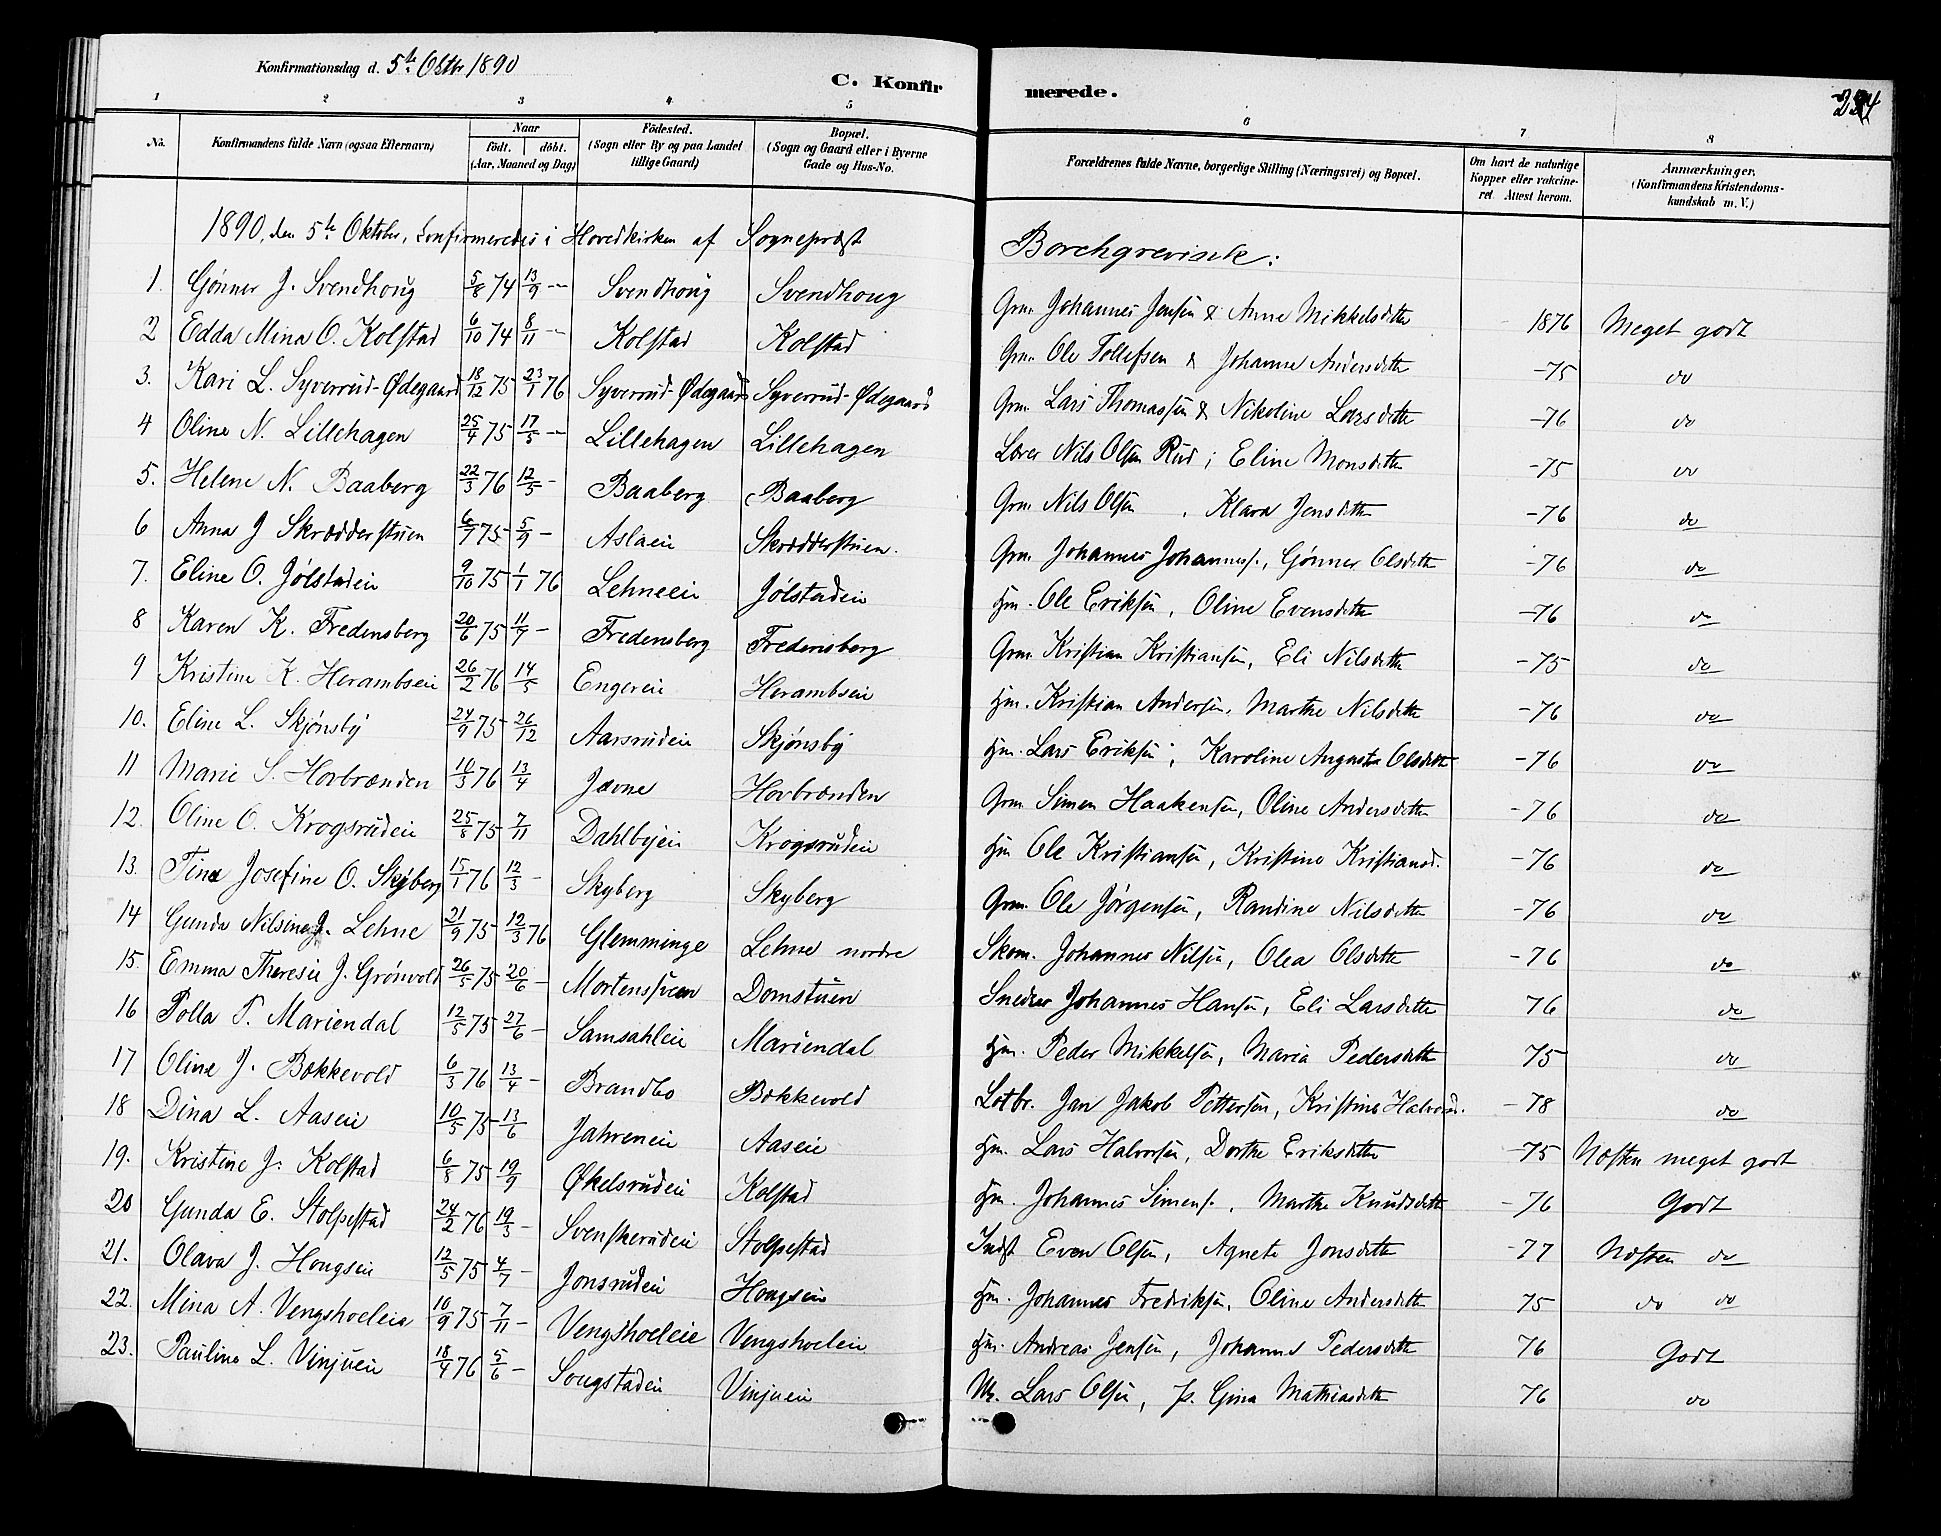 Konfirmationsdag d. 5te Oktbr 1890
C. Konfirmerede.
234
1 2 3 4 5 6 7 8
No. Konfirmandens fulde Navn (ogsaa Efternavn) Naar födt. döbt. (Aar, Maaned og Dag) Födested. (Sogn eller By og paa Landet tillige Gaard) Bopæl. (Sogn og Gaard eller i Byerne Gade og Hus-No. Forældrenes fulde Navne, borgerlige Stilling (Næringsvei) og Bopæl. Om havt de naturlige Kopper eller vakcineret. Attest herom. Anmærkninger. (Konfirmandens Kristendomskundskab m. V.)
1890, den 5te Oktober, konfirmeredes i Hovedkirken af Sogneprest Borchgrevinck:
1. Gønner J. Svendhoug 5/8 74 13/9 -- Svendhoug Svendhoug Grm. Johannes Jensen & Anne Mikkelsdatter 1876 Meget godt
2 Edda Mina O. Kolstad 6/10 74 8/11 -- Kolstad Kolstad Grm. Ole Tollefsen & Johanne Andersdatter -75 do
3. Kari L. Syverrud-Ødegaard 18/12 75 23/1 76 Syverrud-Ødegaard Syverrud-Ødegaard Grm. Lars Thomassen & Nikoline Larsdatter -76 do
4 Oline N. Lillehagen 25/4 75 17/5 -- Lillehagen Lillehagen Lærer Nils Olsen Rud; Eline Monsdatter -75 do
5. Helene N. Baaberg 22/3 76 12/5 - Baaberg Baaberg Grm. Nils Olsen, Klara Jensdatter -76 do
6 Anna J Skrædderstuen 6/7 75 5/9 - Aslaeie Skrædderstuen. Grm. Johannes Johannesf., Gønner Olsdatter -76 do
7. Eline O. Jølstadeie 9/10 75 1/1 76 Lehneeie Jølstadeie Hm. Ole Eriksen, Oline Evensdatter -76 do
8 Karen K. Fredensberg 20/6 75 11/7 - Fredensberg Fredensberg Grm. Kristian Kristiansen, Eli Nilsdatter -75 do
9 Kristine K. Herambseie 26/2 76 14/5 Engereie Herambseie Hm. Kristian Andersen, Marthe Nilsdatter -76 do
10. Eline L. Skjønsby 24/9 75 26/12 Aarsrudeie Skjønsby Hm. Lars Eriksen, Karoline Augusta Olsdatter -76 do
11 Marie S. Hovbrænden 10/3 76 13/4 Jævne Hovbrænden Grm Simen Haakensen, Oline Andersdatter -76 do
12. Oline O. Krogsrudeie 25/8 75 7/11 Dahlbyeie Krogsrudeie Hm Ole Kristiansen, Kristine Kristiansd. -76 do
13. Tina Josefine O. Skyberg 15/1 76 12/3 - Skyberg Skyberg Grm. Ole Jørgensen, Randine Nilsdatter -76 do
14 Gunda Nilsine J. Lehne 21/9 75 12/3 76 Glemminge Lehne nordre Skom. Johannes Nilsen, Olea Olsdatter -76 do
15. Emma Theresie J. Grønvold 26/5 75 20/6 - Mortenstuen Domstuen Snedker Johannes Hansen, Eli Larsdatter 76 do
16 Polla P. Mariendal 12/5 75 27/6 - Samsahleie Mariendal Hm. Peder Mikkelsen, Maria Pedersdatter 75 do
17 Oline J. Bækkevold 6/3 76 13/4 - Brandbo Bækkevold Lotbr. Jan Jakob Pettersen, Kristine Halvorsd. -78 do
18 Dina L. Aaseie 10/5 75 13/6 Jahreneie Aaseie Hm. Lars Halvorsen, Dorthe Eriksdatter -75 Næsten meget godt
19. Kristine J. Kolstad 6/8 75 19/9 Økelsrudeie Kolstad Hm. Johannes Simensf., Marthe Knudsdatter -76 Godt
20 Gunda E. Stolpestad 24/2 76 19/3 - Svenskerudeie Stolpestad Indst Even Olsen, Agnete Jonsdatter -77 Næsten do
21. Olava J. Hougseie 12/5 75 4/7 - Jonsrudeie Hougseie Hm. Johannes Fredriksen, Oline Andersdatter 75 do do
22. Mina A. Vengshoeleie 10/9 75 7/11 - Vengshoeleie Vengshoeleie Hm. Andreas Jensen, Johanne Pedersdatter 76 Godt
23. Pauline L. Vinjueie 18/4 76 5/6 - Sougstadeie Vinjueie Lars Olsen, Gina Mathiasdatter 76 do